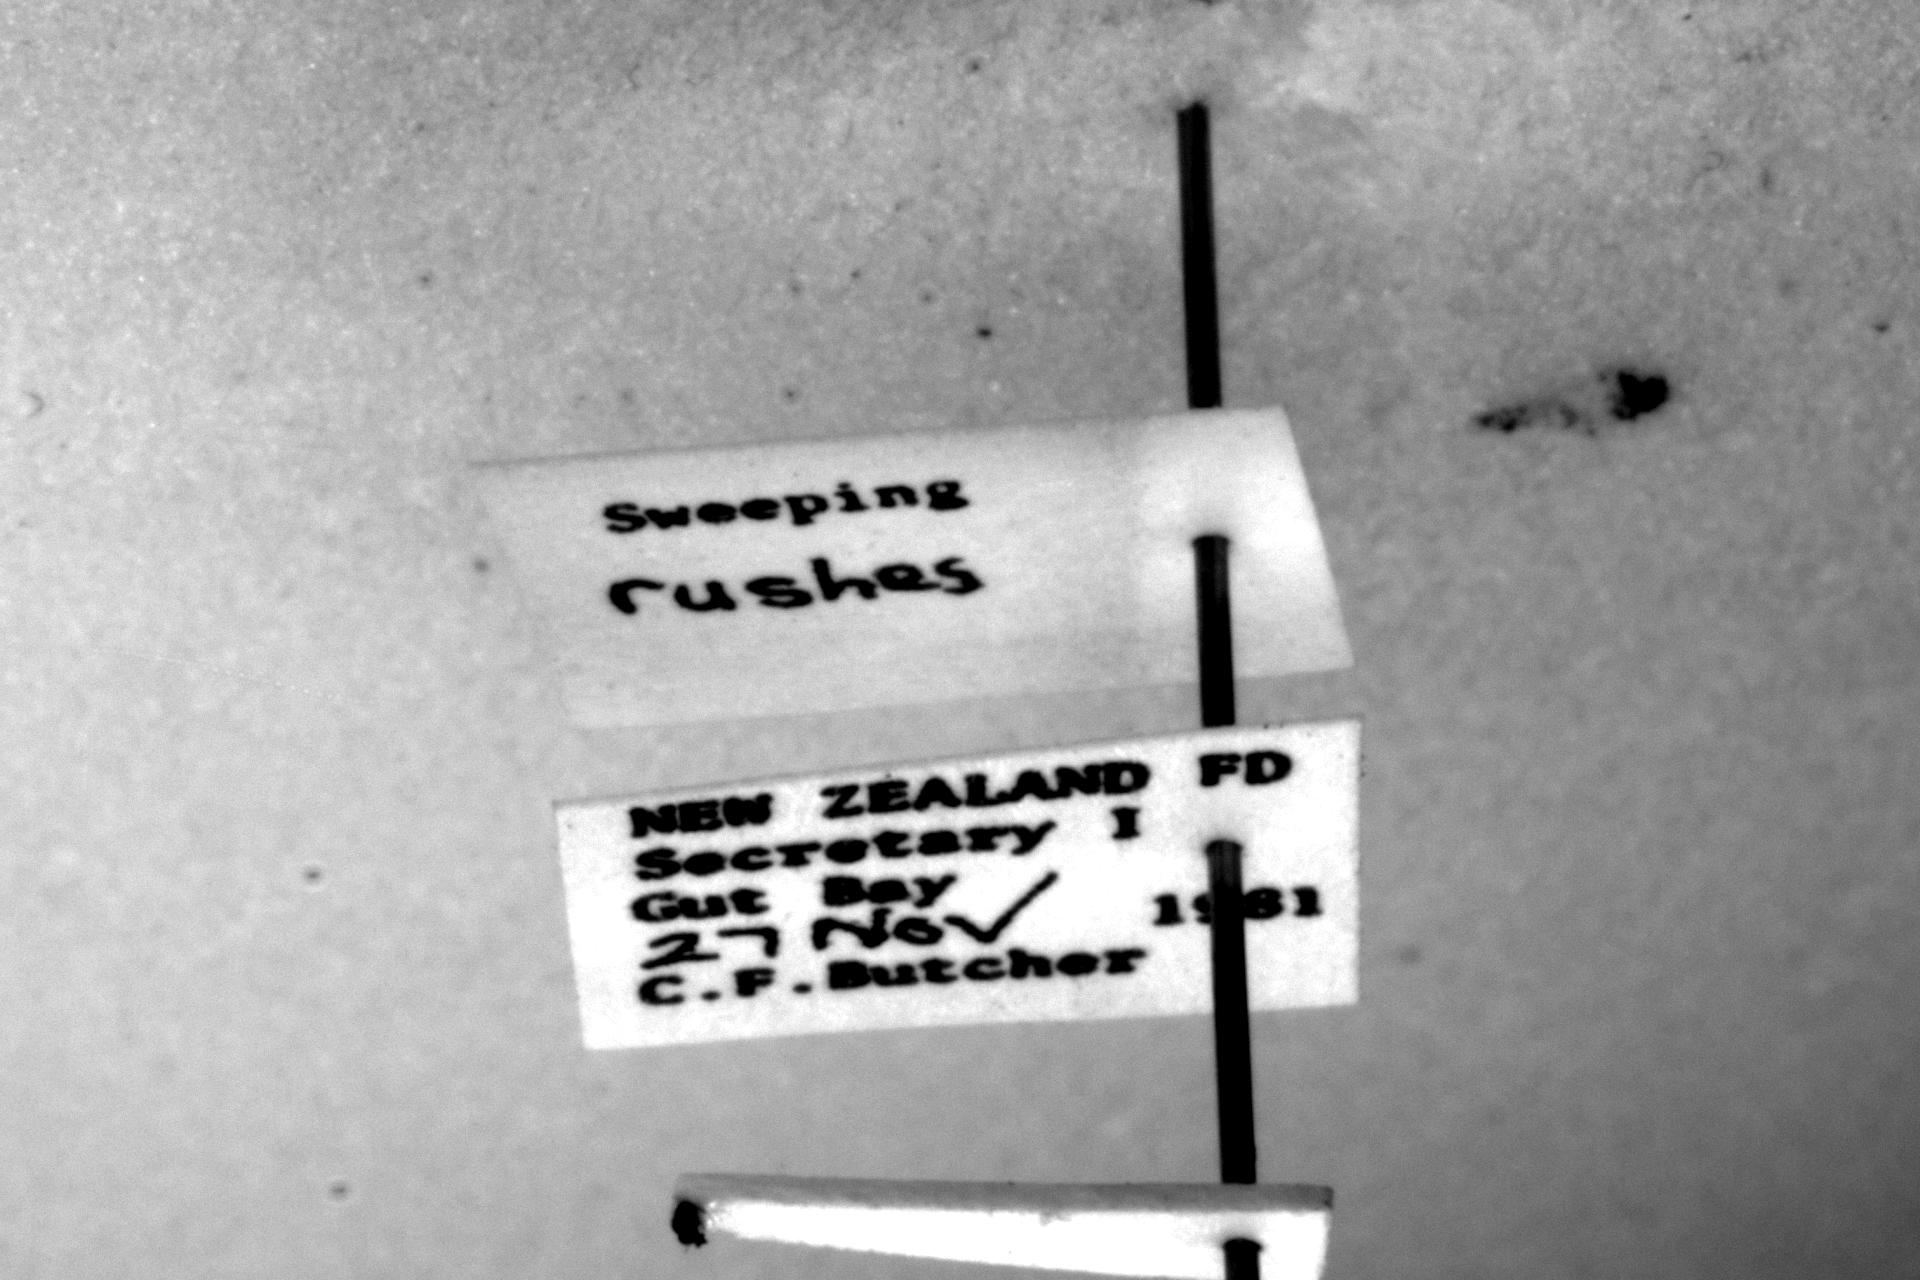 Sweeping
rushes
NEW ZEALAND FD
Secretary I
Gut Bay
27 Nov 1981
C.F.Butcher